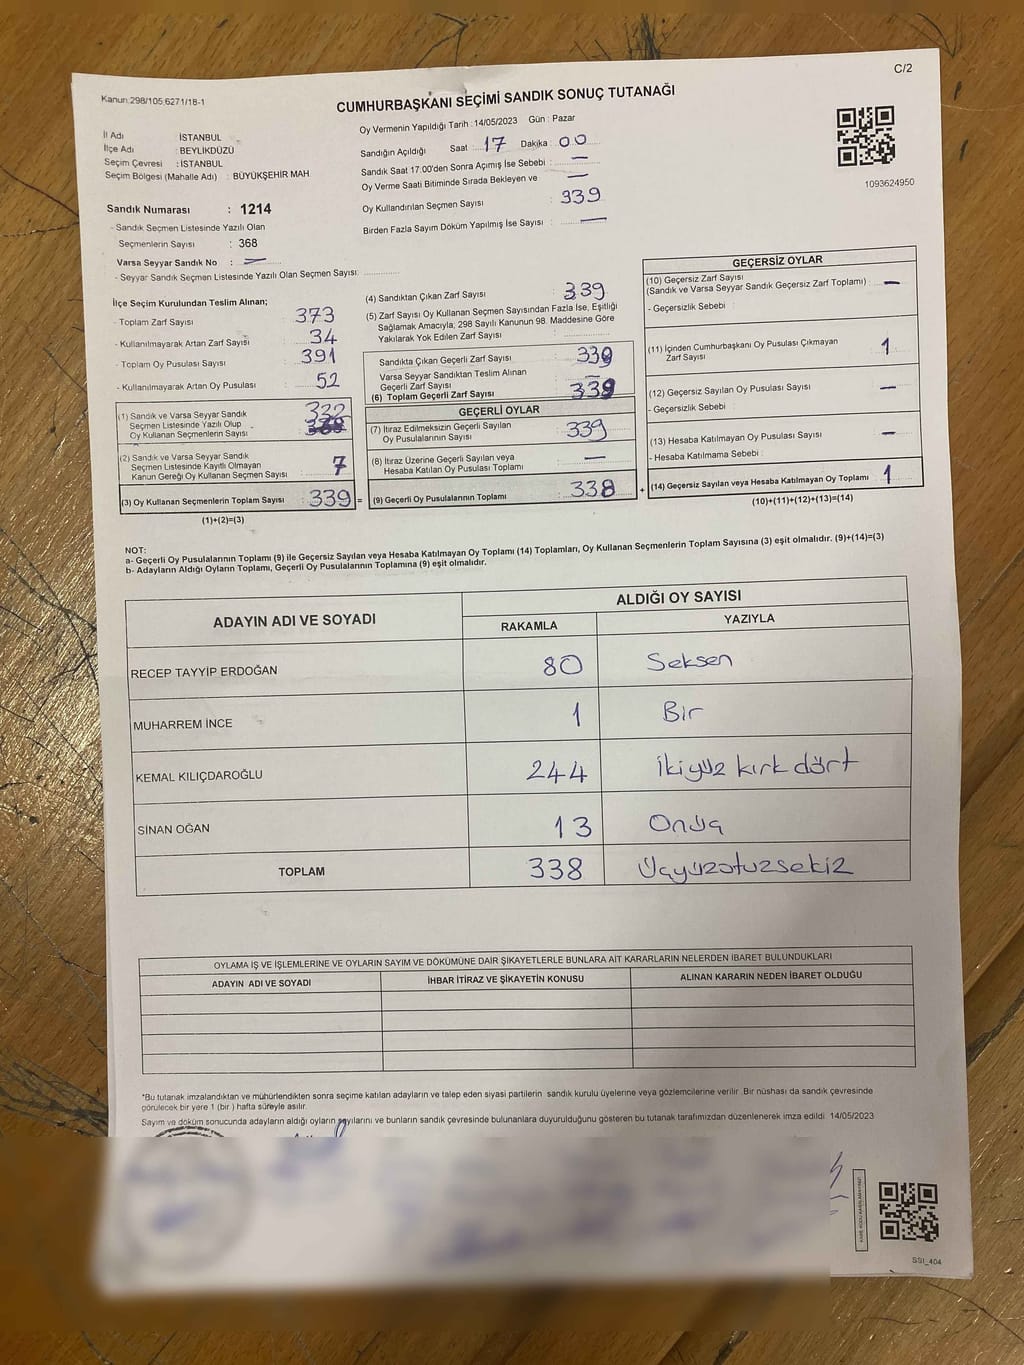 C/2
Kanun:298/105;6271/18-1
CUMHURBAŞKANI SEÇİMİ SANDIK SONUÇ TUTANAĞI
İl Adı : İSTANBUL
İlçe Adı : BEYLİKDÜZÜ
Seçim Çevresi : İSTANBUL
Seçim Bölgesi (Mahalle Adı) : BÜYÜKŞEHİR MAH
Sandık Numarası : 1214
- Sandık Seçmen Listesinde Yazılı Olan
Seçmenlerin Sayısı : 368
Varsa Seyyar Sandık No : —
- Seyyar Sandık Seçmen Listesinde Yazılı Olan Seçmen Sayısı:
Oy Vermenin Yapıldığı Tarih : 14/05/2023 Gün : Pazar
Sandığın Açıldığı Saat : 17 Dakika : 00
Sandık Saat 17:00'den Sonra Açımış İse Sebebi : —
Oy Verme Saati Bitiminde Sırada Bekleyen ve —
Oy Kullandırılan Seçmen Sayısı : 339
Birden Fazla Sayım Döküm Yapılmış İse Sayısı : —
1093624950
İlçe Seçim Kurulundan Teslim Alınan;
- Toplam Zarf Sayısı : 373
- Kullanılmayarak Artan Zarf Sayısı : 34
- Toplam Oy Pusulası Sayısı : 391
- Kullanılmayarak Artan Oy Pusulası : 52
(1) Sandık ve Varsa Seyyar Sandık
Seçmen Listesinde Yazılı Olup
Oy Kullanan Seçmenlerin Sayısı : 332
(2) Sandık ve Varsa Seyyar Sandık
Seçmen Listesinde Kayıtlı Olmayan
Kanun Gereği Oy Kullanan Seçmen Sayısı : 7
(3) Oy Kullanan Seçmenlerin Toplam Sayısı : 339 =
(1)+(2)=(3)
(4) Sandıktan Çıkan Zarf Sayısı : 339
(5) Zarf Sayısı Oy Kullanan Seçmen Sayısından Fazla İse, Eşitliği
Sağlamak Amacıyla; 298 Sayılı Kanunun 98. Maddesine Göre
Yakılarak Yok Edilen Zarf Sayısı :
Sandıkta Çıkan Geçerli Zarf Sayısı : 339
Varsa Seyyar Sandıktan Teslim Alınan
Geçerli Zarf Sayısı : —
(6) Toplam Geçerli Zarf Sayısı : 339
GEÇERLİ OYLAR
(7) İtiraz Edilmeksizin Geçerli Sayılan
Oy Pusulalarının Sayısı : 339
(8) İtiraz Üzerine Geçerli Sayılan veya
Hesaba Katılan Oy Pusulası Toplamı : —
(9) Geçerli Oy Pusulalarının Toplamı : 338 +
GEÇERSİZ OYLAR
(10) Geçersiz Zarf Sayısı
(Sandık ve Varsa Seyyar Sandık Geçersiz Zarf Toplamı) : —
- Geçersizlik Sebebi :
(11) İçinden Cumhurbaşkanı Oy Pusulası Çıkmayan
Zarf Sayısı : 1
(12) Geçersiz Sayılan Oy Pusulası Sayısı : —
- Geçersizlik Sebebi :
(13) Hesaba Katılmayan Oy Pusulası Sayısı : —
- Hesaba Katılmama Sebebi :
(14) Geçersiz Sayılan veya Hesaba Katılmayan Oy Toplamı : 1
(10)+(11)+(12)+(13)=(14)
NOT:
a- Geçerli Oy Pusulalarının Toplamı (9) ile Geçersiz Sayılan veya Hesaba Katılmayan Oy Toplamı (14) Toplamları, Oy Kullanan Seçmenlerin Toplam Sayısına (3) eşit olmalıdır. (9)+(14)=(3)
b- Adayların Aldığı Oyların Toplamı, Geçerli Oy Pusulalarının Toplamına (9) eşit olmalıdır.
ADAYIN ADI VE SOYADI
ALDIĞI OY SAYISI
RAKAMLA YAZIYLA
RECEP TAYYİP ERDOĞAN 80 Seksen
MUHARREM İNCE 1 Bir
KEMAL KILIÇDAROĞLU 244 İkiyüz kırk dört
SİNAN OĞAN 13 Onüç
TOPLAM 338 Üçyüzotuzsekiz
OYLAMA İŞ VE İŞLEMLERİNE VE OYLARIN SAYIM VE DÖKÜMÜNE DAİR ŞİKAYETLERLE BUNLARA AİT KARARLARIN NELERDEN İBARET BULUNDUKLARI
ADAYIN ADI VE SOYADI İHBAR İTİRAZ VE ŞİKAYETİN KONUSU ALINAN KARARIN NEDEN İBARET OLDUĞU
*Bu tutanak imzalandıktan ve mühürlendikten sonra seçime katılan adayların ve talep eden siyasi partilerin sandık kurulu üyelerine veya gözlemcilerine verilir. Bir nüshası da sandık çevresinde
görülecek bir yere 1 (bir ) hafta süreyle asılır.
Sayım ve döküm sonucunda adayların aldığı oyların sayılarını ve bunların sandık çevresinde bulunanlara duyurulduğunu gösteren bu tutanak tarafımızdan düzenlenerek imza edildi. 14/05/2023
SSI_404